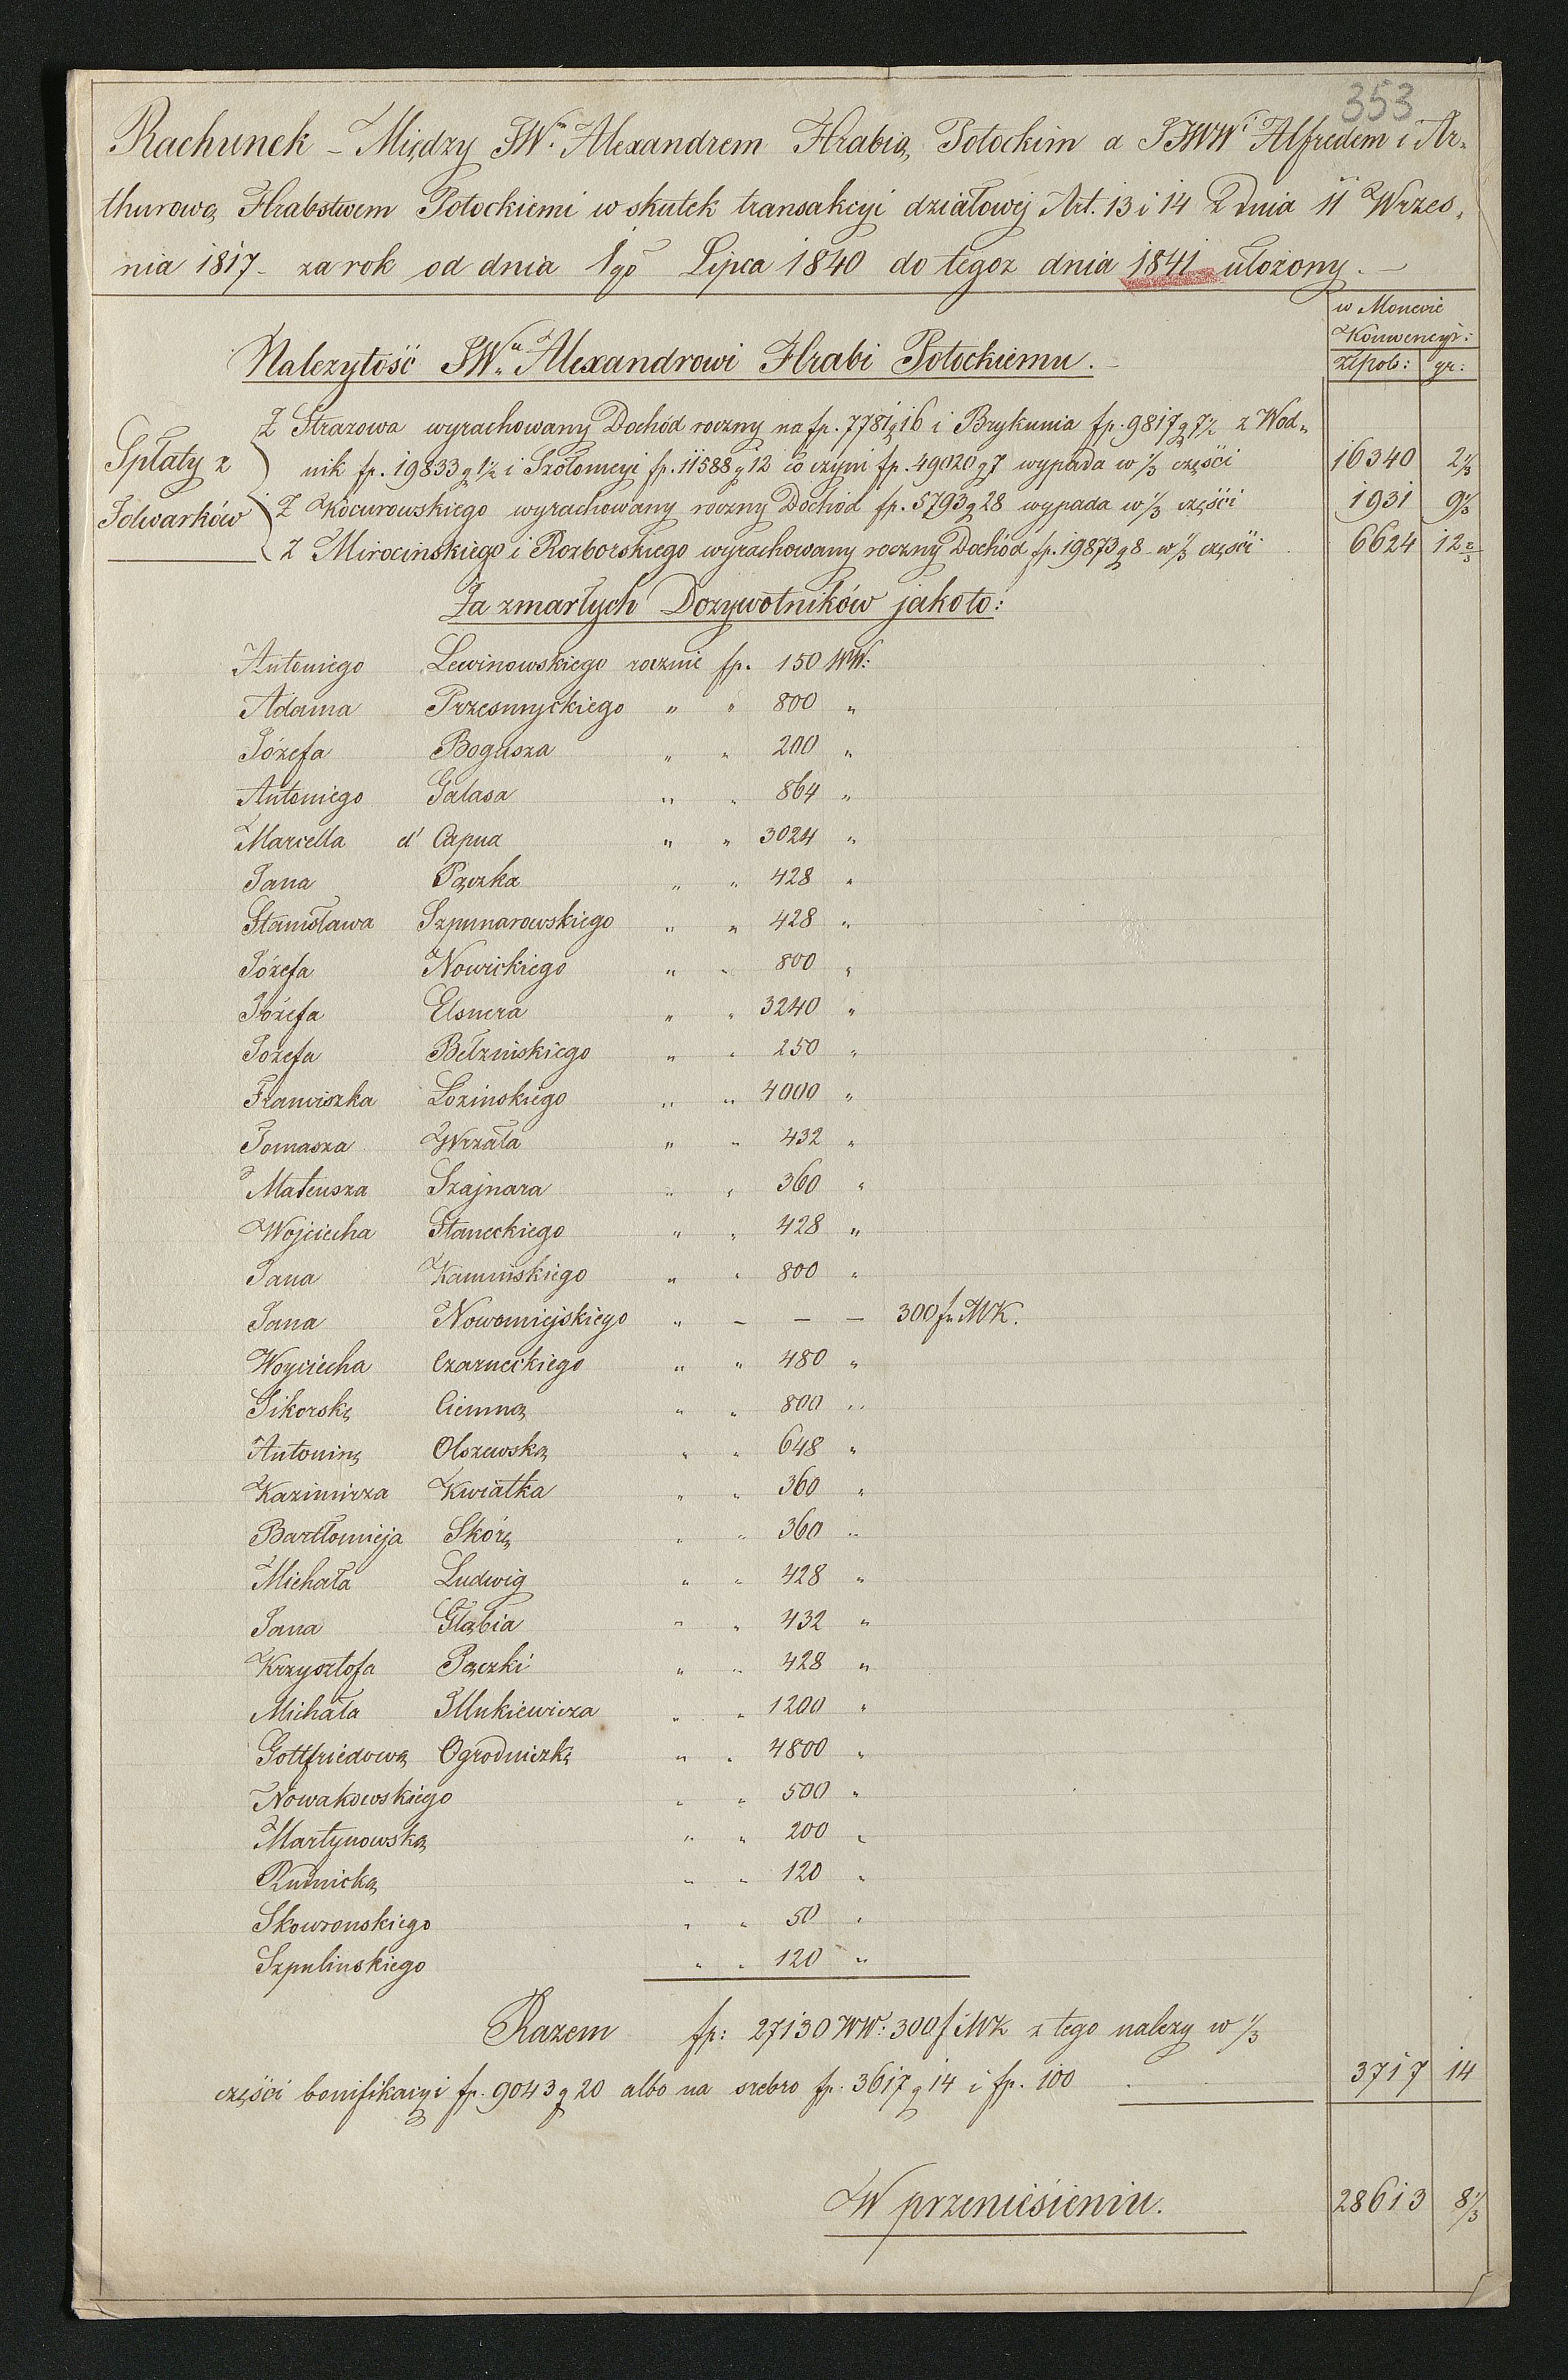 353
Rachunek – Między JWm. Alexandrem Hrabią Potockim a JJWWi Alfredem i Ar-
thurową Hrabstwem Potockiemi w skutek transakcyi działowej Art. 13 i 14 Z dnia 11 Wrzes,
nia 1817 – za rok od dnia 1go Lipca 1840 do tegoz dnia 1841 ułożony. –
w Monecie
Konwencyi:
złpols: gr:
Nalezytość JWu. Alexandrowi Hrabi Potockiemu. –
Spłaty z
Folwarków
Z Strazowa wyrachowany Dochód roczny na fp. 7781 g 16 i Brykunia fp. 9817 g 7½ z Wod„
nik fp. 19833 g 1½ i Szołomeyi fp. 11588 g 12 co czyni fp. 49020 g 7 wypada w ⅓ części 16340 2⅓
Z Kocurowskiego wyrachowany roczny Dochód fp. 5793 g 28 wypada w ⅓ części 1931 9⅓
Z Mirocinskiego i Rozborskiego wyrachowany roczny Dochód fp. 19873 g 8 – w ⅓ części 6624 12⅔
Za zmarłych Dozywotników jakoto:
Antoniego Lewinowskiego rocznie fp. 150 WW:
Adama Przesmyckiego „ „ 800 „
Józefa Bogusza „ „ 200 „
Antoniego Galasa „ „ 864 „
Marcella d' Capua „ „ 3024 „
Jana Pączka „ „ 428 „
Stanisława Szpunarowskiego „ „ 428 „
Józefa Nowickiego „ „ 800 „
Józefa Elsnera „ „ 3240 „
Jozefa Bełzinskiego „ „ 250 „
Franciszka Lozinskiego „ „ 4000 „
Tomasza Wrzała „ „ 432 „
Mateusza Szajnara „ „ 360 „
Wojciecha Staneckiego „ „ 428 „
Jana Kaminskiego „ „ 800 „
Jana Nowomiejskiego „ – – – 300 fr MK.
Woyciecha Czarneckiego „ „ 480 „
Sikorską Ciemną „ „ 800 „
Antoninę Olszewską „ „ 648 „
Kazimirza Kwiatka „ „ 360 „
Bartłomieja Skórę „ „ 360 „
Michała Ludwig „ „ 428 „
Jana Głąbia „ „ 432 „
Krzysztofa Pączki „ „ 428 „
Michała Illukiewicza „ „ 1200 „
Gottfriedową Ogrodniczkę „ „ 4800 „
Nowakowskiego „ „ 500 „
Martynowską „ „ 200 „
Rudnicką „ „ 120 „
Skowronskiego „ „ 50 „
Szpulinskiego „ „ 120 „
Razem fp: 27130 WW: 300 f MK z tego nalezy w ⅓
części bonifikacyi fp. 9043 g 20 albo na srebro fp. 3617 g 14 i fp. 100 3717 14
W przeniesieniu. 28613 8⅓